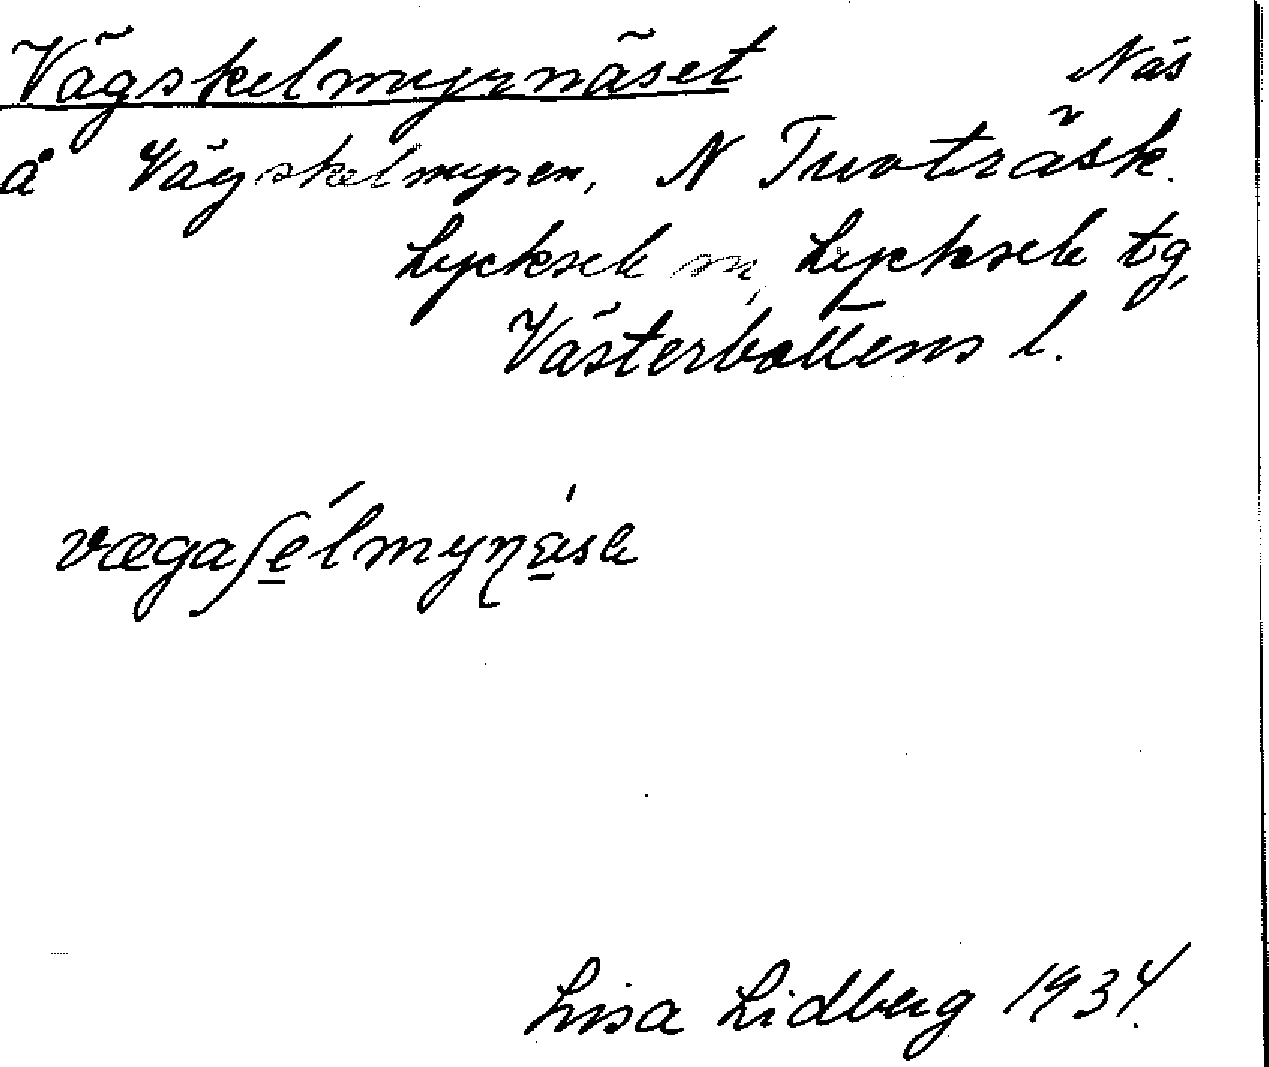 Vägskelmyrnäset Näs
å Vägskelmyren, N Tuvträsk.
Lycksele sn, Lycksele tg,
Västerbottens l.
vægaʃe̲ĺmyṇä̲se
Lisa Lidberg 1934.